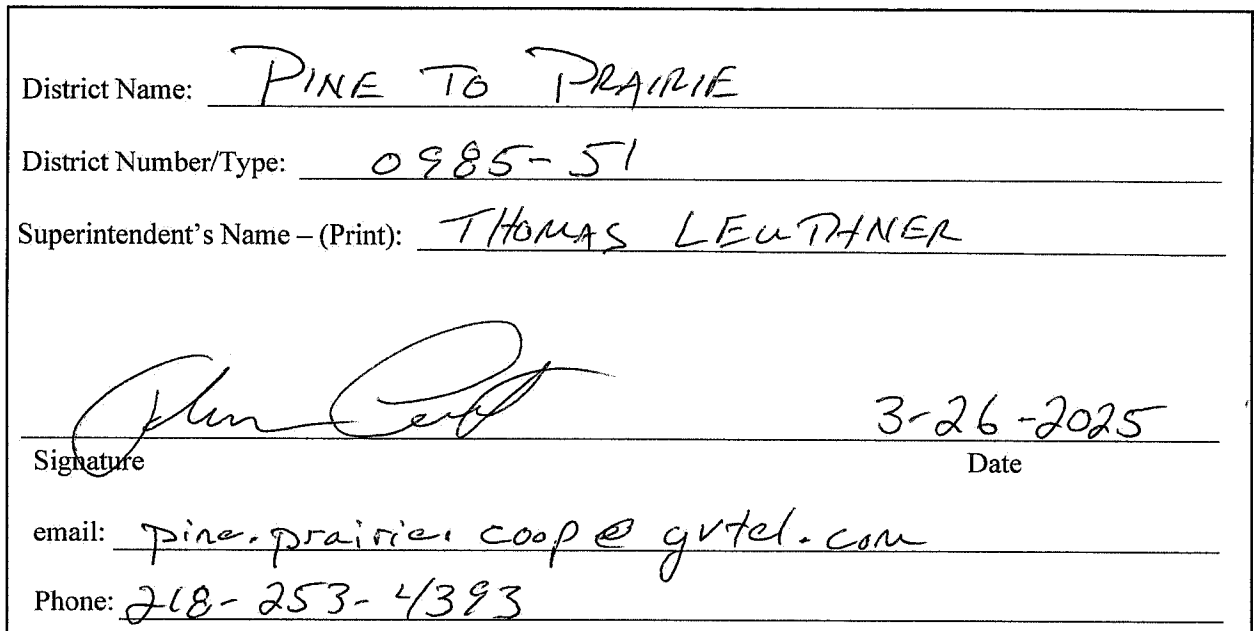 District Name: PINE TO PRAIRIE
District Number/Type: 0985-51
Superintendent's Name – (Print): THOMAS LEUTHNER
3-26-2025
Signature Date
email: pine.prairie.coop@gvtel.com
Phone: 218-253-4393